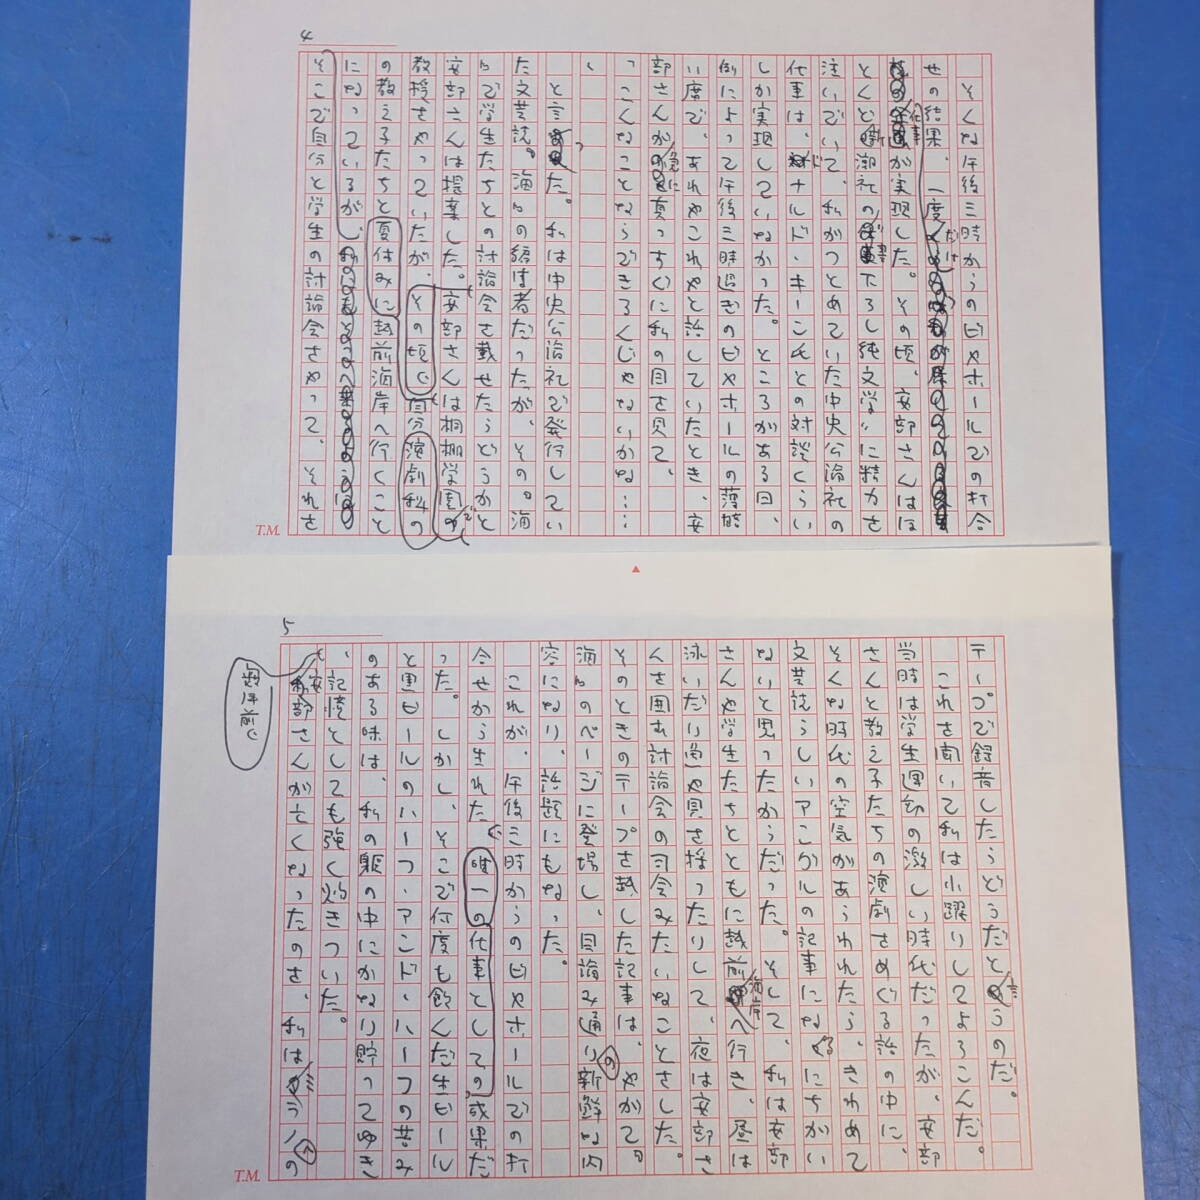 4
そんな午後三時からのビヤホールでの打合
せの結果、一度だけ
仕事が実現した。その頃、安部さんはほ
とんど新潮社の書下ろし純文学に精力を
注いでいて、私がつとめていた中央公論社の
仕事は、ドナルド・キーン氏との対談くらい
しか実現していなかった。ところがある日、
例によって午後三時過ぎのビヤホールの薄暗
い席で、あれやこれやと話していたとき、安
部さんが急に真っすぐに私の目を見て、
「こんなことならできるんじゃないかな……
」
と言った。私は中央公論社で発行してい
た文芸誌『海』の編集者だったが、その『海
』で学生たちとの討論会を載せたらどうかと
安部さんは提案した。安部さんは桐朋学園で
教授をやっていたが、その頃で自分演劇科の
の教え子たちと夏休みに越前海岸へ行くこと
になっているが、
そこで自分と学生の討論会をやって、それを
T.M.
5
テープで録音したらどうだと言うのだ。
これを聞いて私は小躍りしてよろこんだ。
当時は学生運動の激しい時代だったが、安部
さんと教え子たちの演劇をめぐる話の中に、
そんな時代の空気があらわれたら、きわめて
文芸誌らしいアこがルの記事になるにちがい
ないと思ったからだった。そして、私は安部
さんや学生たちとともに越前海岸へ行き、昼は
泳いだり魚や貝を採ったりして、夜は安部さ
んを囲む討論会の司会みたいなことをした。
そのときのテープを起した記事は、やがて『
海』のページに登場し、目論み通りの新鮮な内
容になり、話題にもなった。
これが、午後三時からのビヤホールでの打
合せから生れた、唯一の仕事としての成果だ
った。しかし、そこで何度も飲んだ生ビール
と黒ビールのハーフ・アンド・ハーフの苦み
のある味は、私の躯の中にかなり貯ってゆき
、記憶としても強く灼きついた。
安部さんが亡くなったのを、私は
数年前に
T.M.